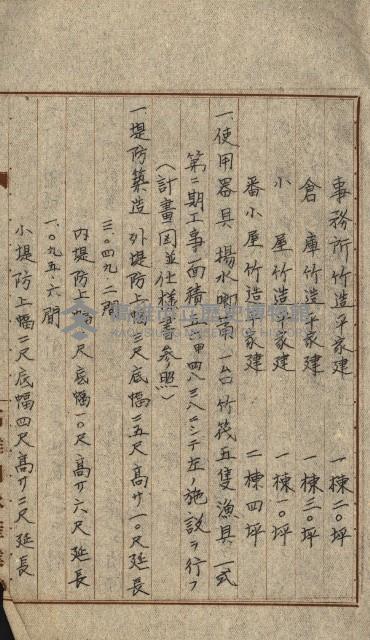 事務所竹造平家建 一棟二〇坪
倉庫竹造平家建 一棟三〇坪
小屋竹造平家建 一棟一〇坪
番小屋竹造平家建 二棟四坪
一、使用器具 揚水喞筒一台竹筏五隻漁具一式
第二期工事ハ面積 甲四八三八ニシテ左ノ施設ヲ行フ
(計畫図並仕様書参照)
一 堤防築造 外堤防上幅三尺底幅二五尺高サ一〇尺延長
三.〇四九.二間
内堤防上幅 尺底幅一〇尺高サ六尺延長
一.〇九五.六間
小堤防上幅二尺底幅四尺高サ二尺延長
高雄市立歷史博物館